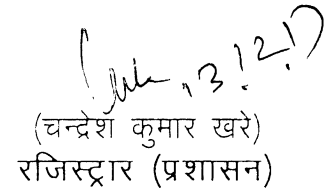 (चन्द्रेश कुमार खरे)
रजिस्ट्रार (प्रशासन)